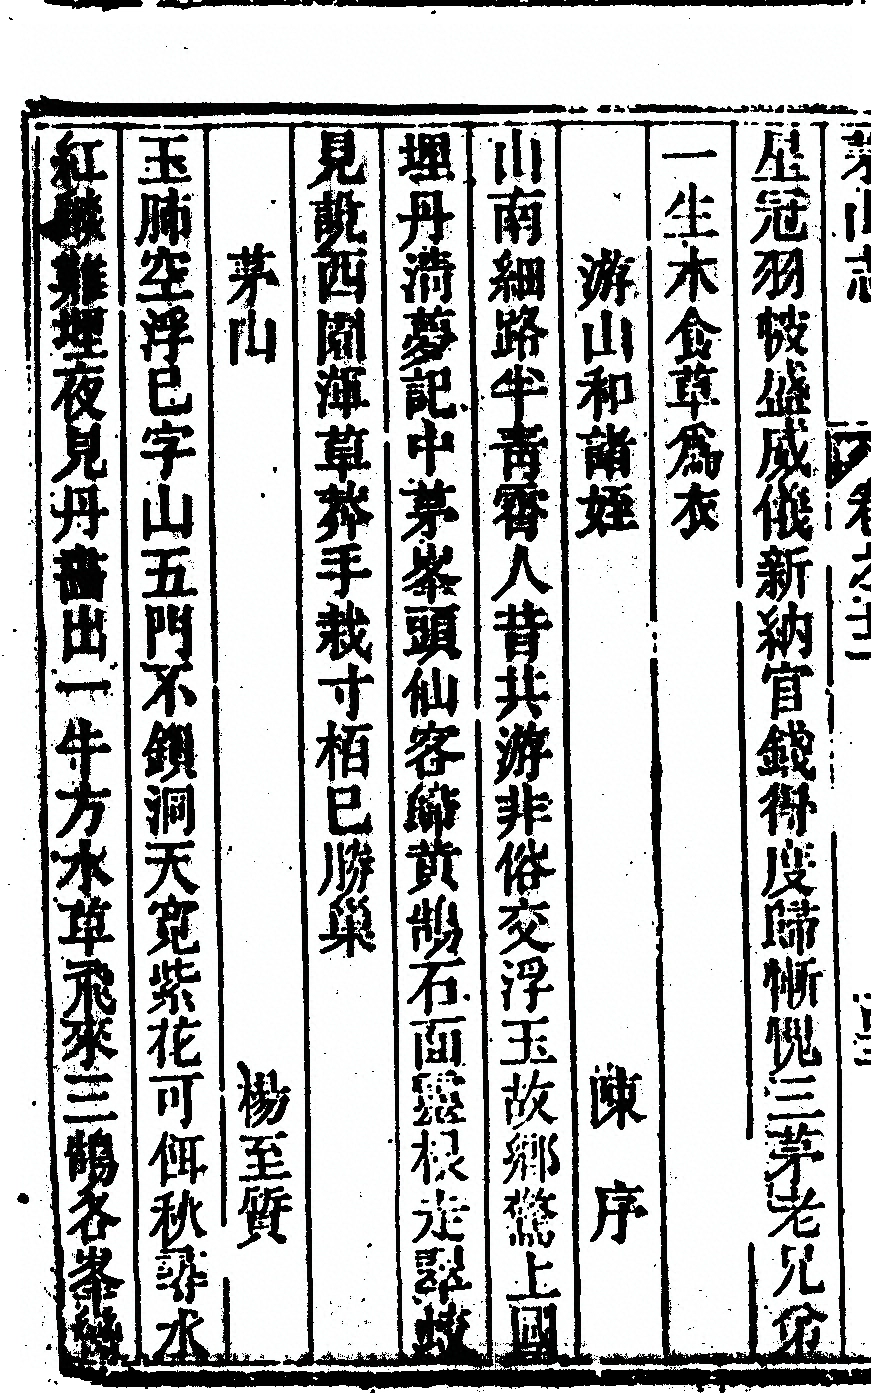 茅山志 卷之十二
星冠羽帔盛威儀新納官錢得度歸慚愧三茅老兄弟
一生木食草爲衣
游山和諸姪 陳序
山南細路半靑霄人昔共游非俗交浮玉故鄉驚上國
埋丹淸夢記中茅峯頭仙客歸黃鵠石面靈根走翠
見說西園渾草莽手栽寸栢巳勝巢
茅山 楊至質
玉肺空浮巳字山五門不鎖洞天寛紫花可餌秋尋水
紅難埋夜見丹畵出一牛方水草飛來三鵠各峯巒